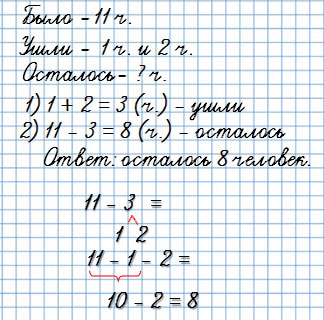 Было - 11 ч.
Ушли - 1 ч. и 2 ч.
Осталось - ? ч.
1) 1 + 2 = 3 (ч.) - ушли
2) 11 - 3 = 8 (ч.) - осталось
Ответ: осталось 8 человек.
11 - 3 =
1 2
11 - 1 - 2 =
10 - 2 = 8